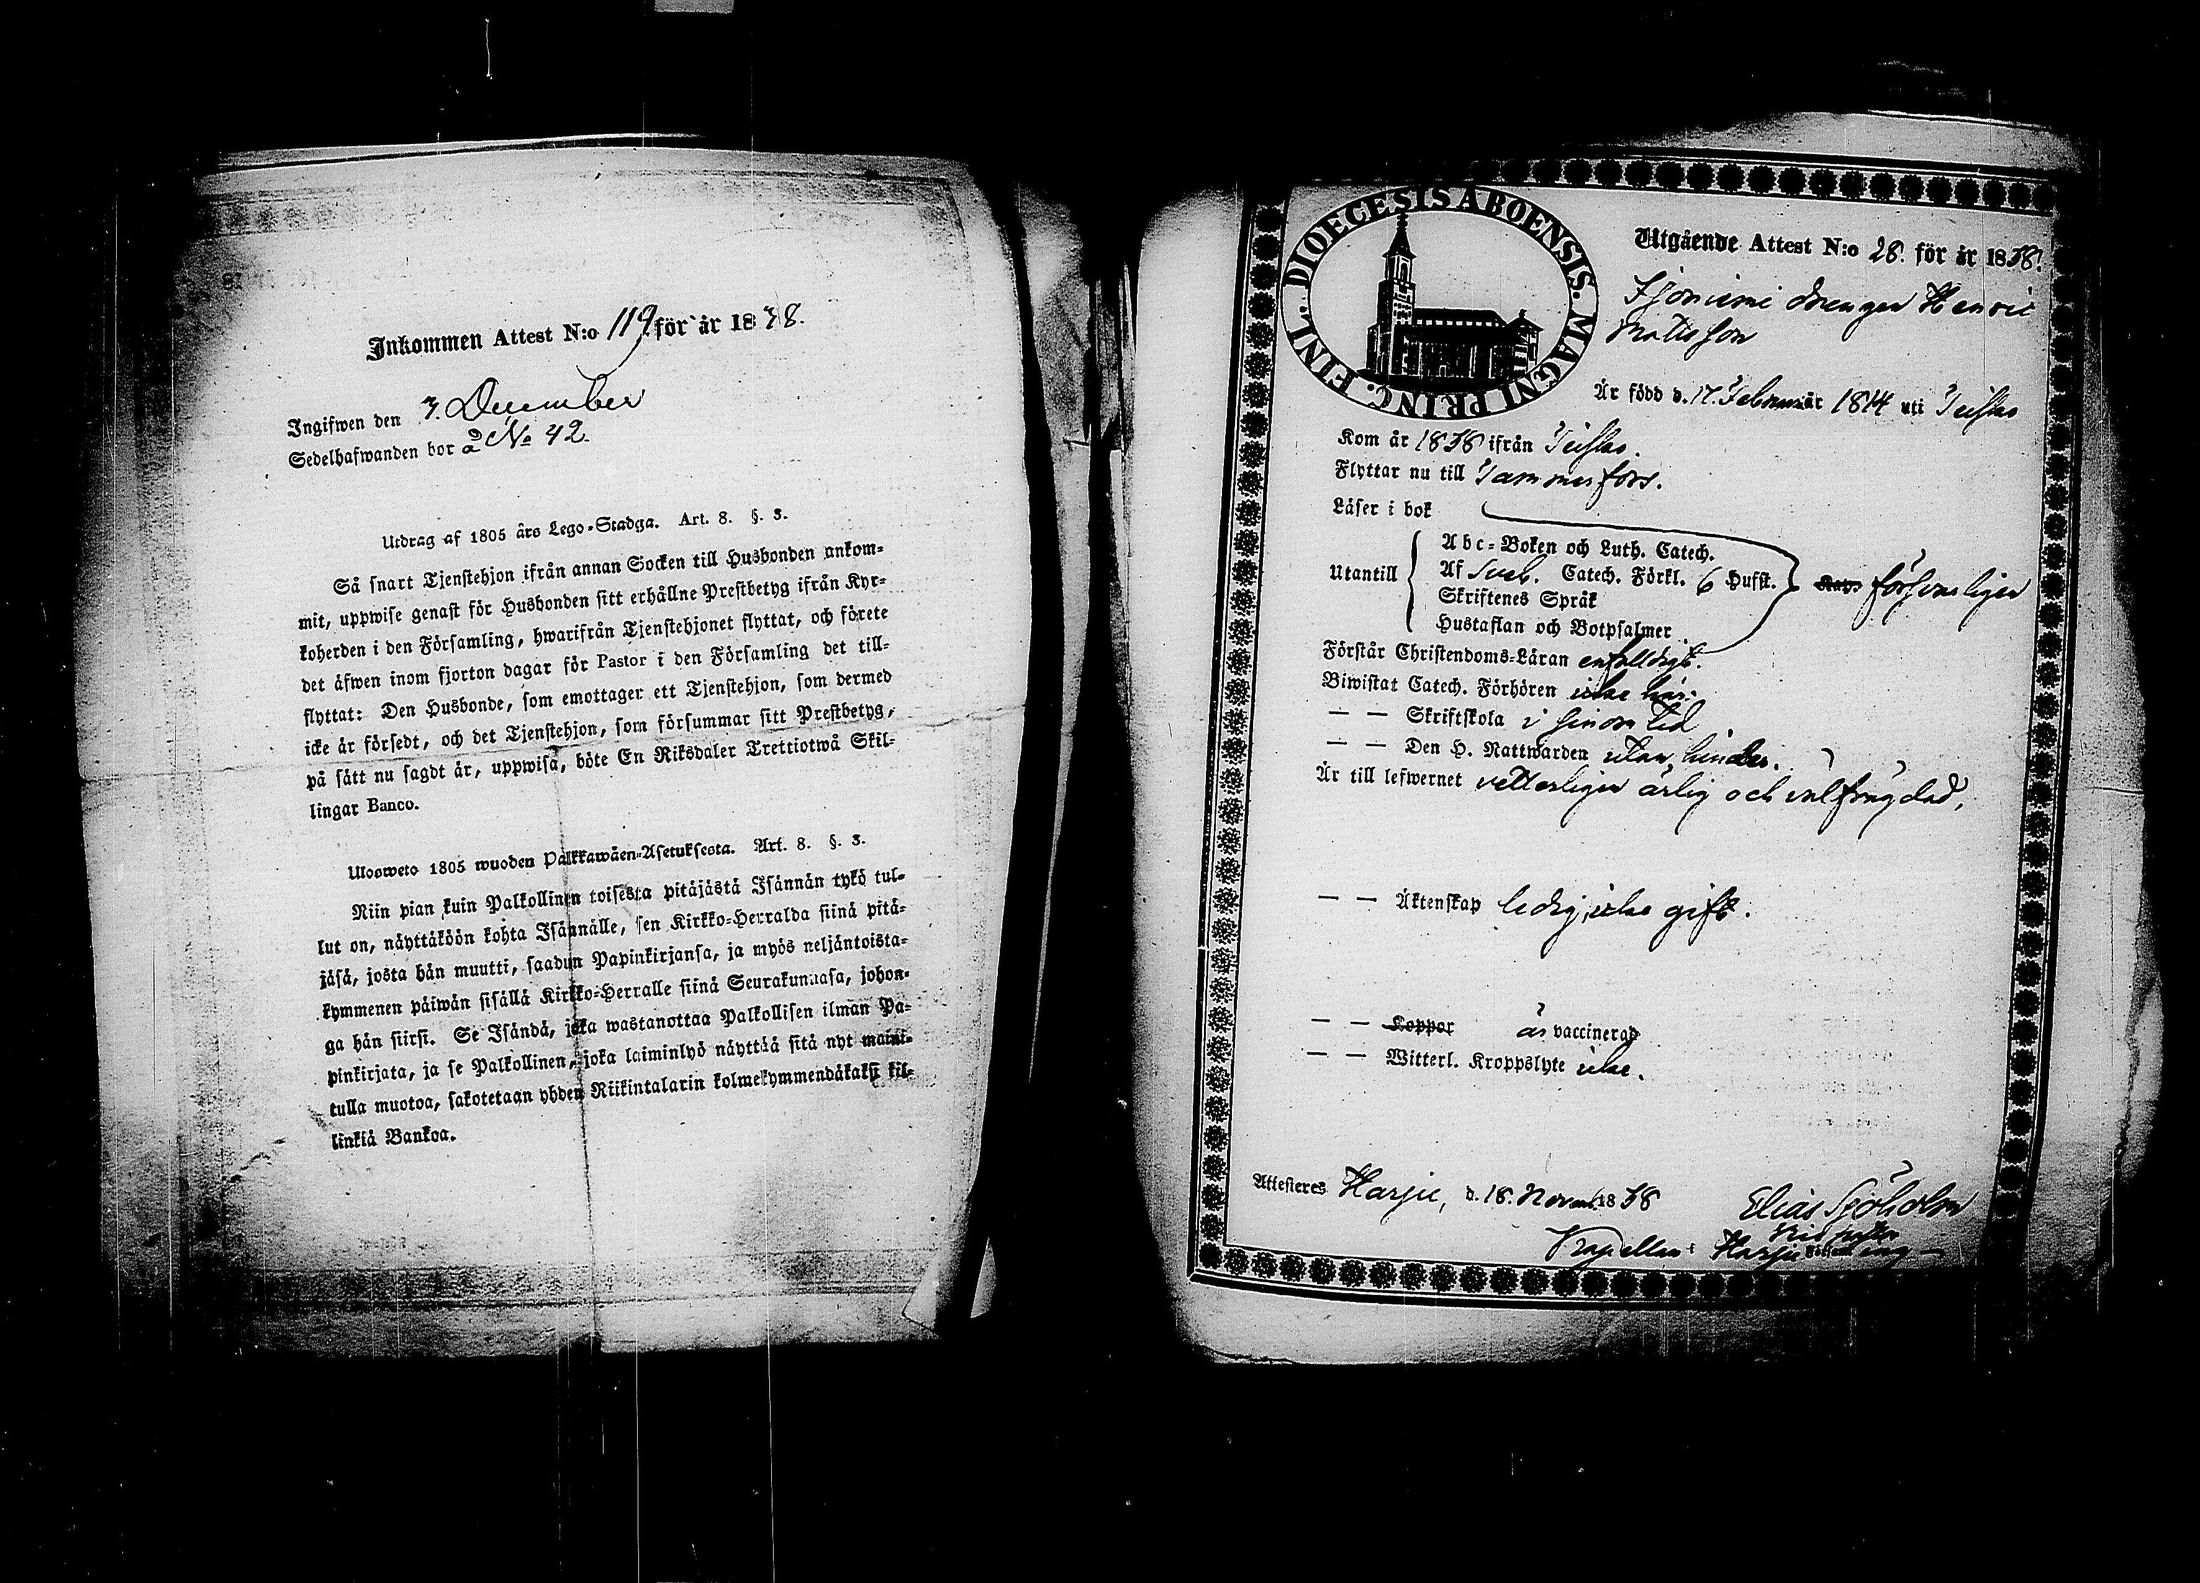 Inkommen Attest N:o 119 för år 1838.
Ingifwen den 3. December
Sedelhafwanden bor å No 42.
Utdrag af 1805 års Lego-Stadga. Art. 8. §. 3.
Så snart Tjenstehjon ifrån annan Socken till Husbonden ankom-
mit, uppwise genast för Husbonden sitt erhållne Prestbetyg ifrån Kyr-
koherden i den Församling, hwarifrån Tjenstehjonet flyttat, och förete
det äfwen inom fjorton dagar för Pastor i den Församling det till-
flyttat: Den Husbonde, som emottager ett Tjenstehjon, som dermed
icke är försedt, och det Tjenstehjon, som försummar sitt Prestbetyg,
på sätt nu sagdt är, uppwisa, böte En Riksdaler Trettiotwå Skil-
lingar Banco.
Ulosweto 1805 wuoden Palkkawäen-Asetuksesta. Art. 8. §. 3.
Niin pian kuin Palkollinen toisesta pitäjästä Isännän tykö tul-
lut on, näyttäköön kohta Isännälle, sen Kirkko-Herralda siinä pitä-
jäsä, josta hän muutti, saadun Papinkirjansa, ja myös neljäntoista-
kymmenen päiwän sisällä Kirkko-Herralle siinä Seurakunnasa, johon-
ga hän siirsi. Se Isändä, joka wastanottaa Palkollisen ilman Pa-
pinkirjata, ja se Palkollinen, joka laiminlyö näyttää sitä nyt maini-
tulla muotoa, sakotetaan yhden Riikintalarin kolmekymmendäkaksi kil-
linkiä Bankoa.
FINL. DIOECESIS ABOENSIS. MAGNI PRINC.
Utgående Attest N:o 28. för år 1838.
drengen Henric
Mattsson
Är född d. 17. Februari år 1814 uti Teisko
Kom år 1838 ifrån Teisko.
Flyttar nu till Tammerfors.
Läser i bok
Utantill
Abc-Boken och Luth. Catech.
Af Sveb. Catech. Förkl. 6 Hufst.
Skriftenes Språk
Hustaflan och Botpsalmer
försvarligen
Förstår Christendoms-Läran enfaldigt.
Biwistat Catech. Förhören icke här.
— — Skriftskola i sinom tid
— — Den H. Nattwarden utan hinder.
Är till lefwernet vetterligen ärlig och välfrägdad,
— — Äktenskap ledig, icke gift.
— — Koppor är vaccinerad
— — Witterl. Kroppslyte icke.
Attesteres Harju, d. 18. Novemb. 1838
Elias Sjöholm
Kapellan i Harju Församling